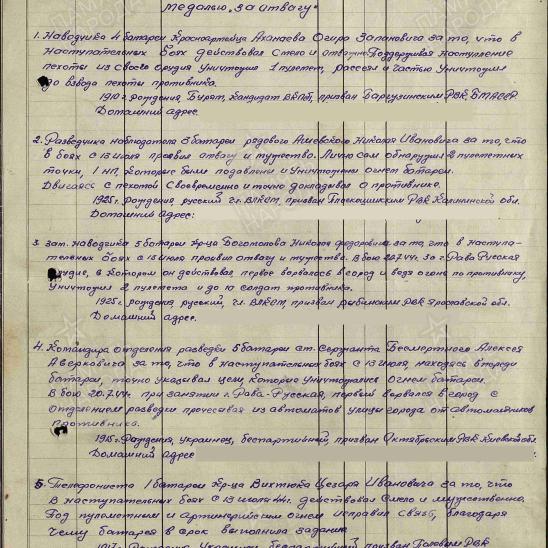 Медалью „За отвагу"
1. Наводчика 4 батареи Красноармейца Аханаева Огира Запановича за то, что в
наступательных боях действовал смело и отважно. Поддерживая наступление
пехоты из своего орудия уничтожил 1 пулемет, рассеял и частью уничтожил
до взвода пехоты противника.
1910 г. рождения, бурят, кандидат ВКПб, призван Баргузинским РВК, БМАССР
Домашний адрес
2. Разведчика наблюдателя 3 батареи рядового Ашевского Николая Ивановича за то, что
в боях с 13 июля проявил отвагу и мужество. Лично сам обнаружил 2 пулеметных
точки, 1 НП, которые были подавлены и уничтожены огнем батареи.
Двигаясь с пехотой своевременно и точно докладывал о противнике.
1925 г. рождения, русский, чл. ВЛКСМ, призван РВК Калининской обл.
Домашний адрес:
3. Зам. наводчика 5 батареи Кр-ца Боголюбова Николая Федоровича за то, что в наступа-
тельных боях с 13 июля проявил отвагу и мужество. В бою 20.7.44 г. за г. Рава Русская
орудие, в котором он действовал первое ворвалось в город и ведя огонь по противнику,
уничтожил 2 пулемета и до 10 солдат противника.
1925 г. рождения, русский, чл. ВЛКСМ, призван Рыбинским РВК Ярославской обл.
Домашний адрес.
4. Командира отделения разведки 5 батареи ст. сержанта Бесмертного Алексея
Аверковича за то, что в наступательных боях с 13 июля, находясь впереди
батареи, точно указывал цели которые уничтожались огнем батареи.
В бою 20.7.44 г. при занятии г. Рава-Русская, первый ворвался в город с
отделением разведки прочесывая из автоматов улицы города от автоматчиков
противника.
1915 г. рождения, украинец, беспартийный, призван Октябрьским РВК Киевской обл.
Домашний адрес
5. Телефониста 1 батареи Кр-ца Вихтюка Цезаря Ивановича за то, что
в наступательных боях с 13 июля 44 г. действовал смело и мужественно.
Под пулеметным и артиллерийским огнем исправил связь, благодаря
чему батарея в срок выполнила задание.
беспартийный, призван РВК